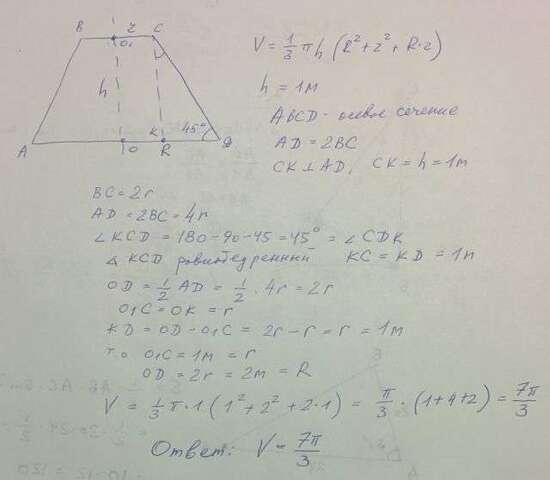 B r C
O₁
h
45°
A O K R D
V = 1/3 πh (R² + r² + R·r)
h = 1м
ABCD - осевое сечение
AD = 2BC
CK ⊥ AD, CK = h = 1м
BC = 2r
AD = 2BC = 4r
∠KCD = 180 - 90 - 45 = 45° = ∠CDK
△ KCD равнобедренный KC = KD = 1м
OD = 1/2 AD = 1/2 · 4r = 2r
O₁C = OK = r
KD = OD - O₁C = 2r - r = r = 1м
т.о O₁C = 1м = r
OD = 2r = 2м = R
V = 1/3 π·1 (1² + 2² + 2·1) = π/3 · (1+4+2) = 7π/3
Ответ: V = 7π/3